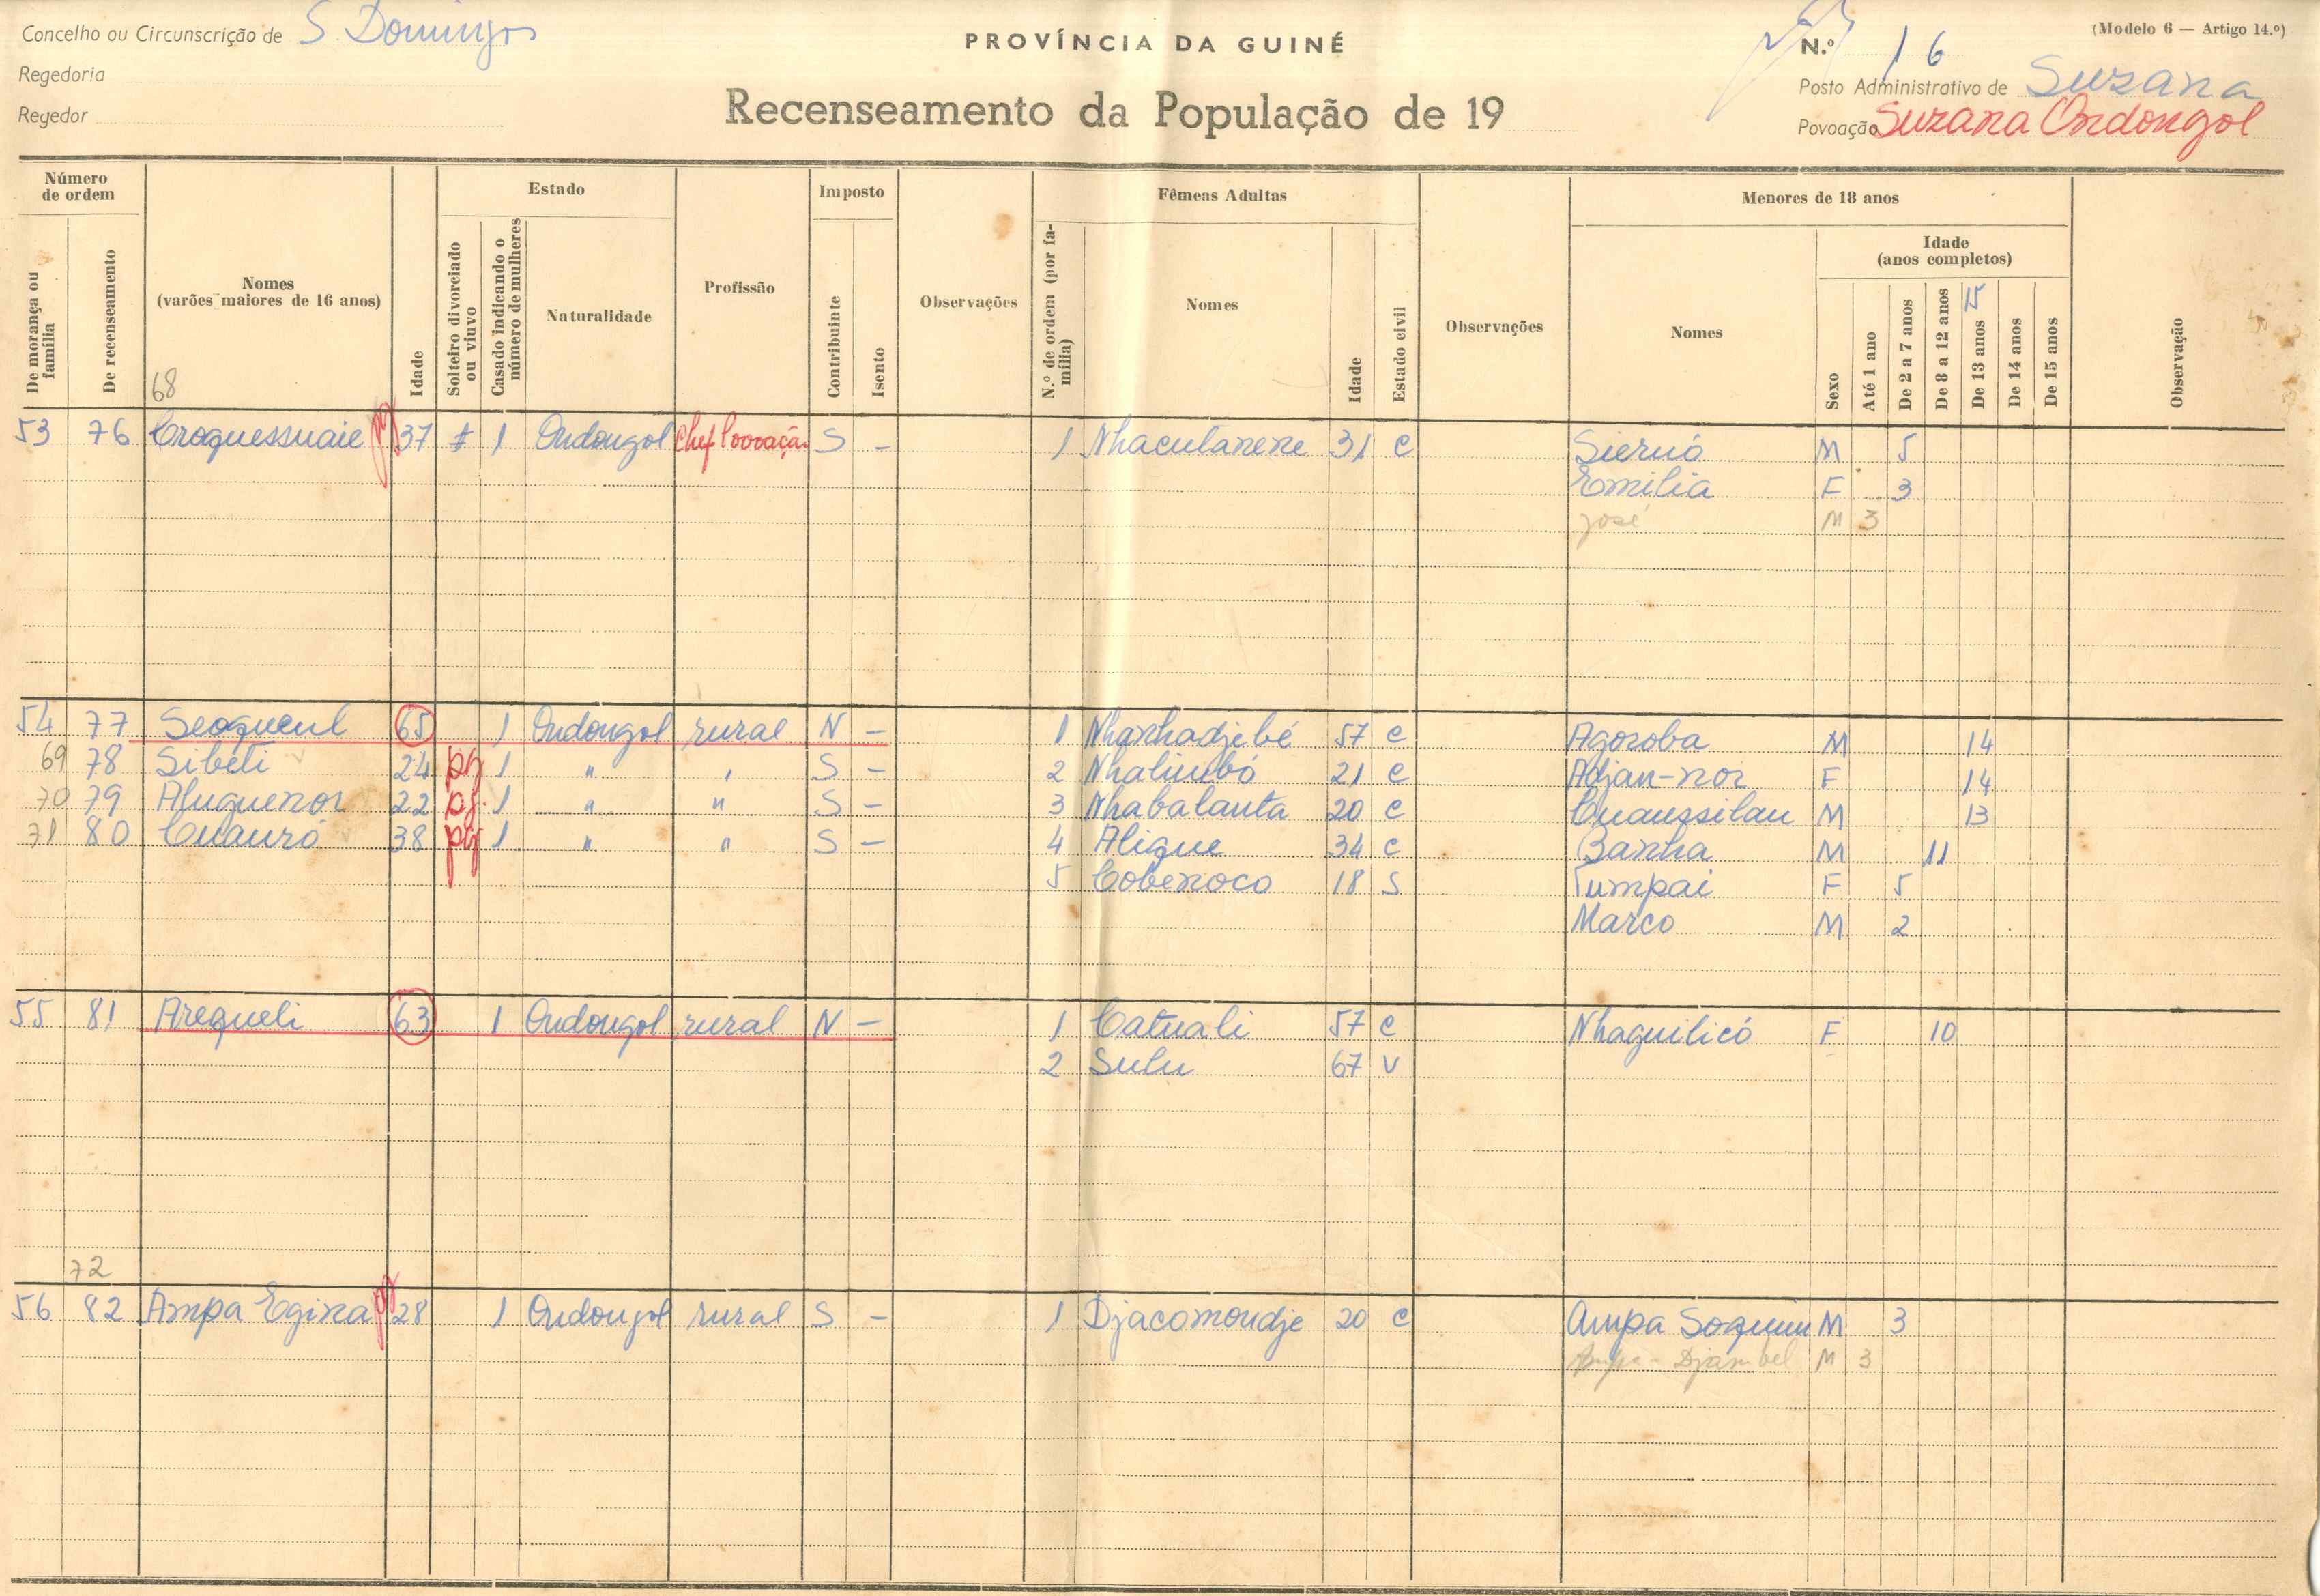 Concelho ou Circunscrição de S. Domingos
PROVÍNCIA DA GUINÉ
N.º 16
(Modelo 6 — Artigo 14.º)
Regedoria
Posto Administrativo de Suzana
Regedor
Recenseamento da População de 19
Povoação Suzana Ondongol
Número de ordem
De morança ou família
De recenseamento
Nomes (varões maiores de 16 anos)
68
Idade
Estado
Solteiro divorciado ou viuvo
Casado indicando o número de mulheres
Naturalidade
Profissão
Imposto
Contribuinte
Isento
Observações
Fêmeas Adultas
N.º de ordem (por família)
Nomes
Idade
Estado civil
Observações
Menores de 18 anos
Nomes
Sexo
Idade (anos completos)
Até 1 ano
De 2 a 7 anos
De 8 a 12 anos
15
De 13 anos
De 14 anos
De 15 anos
Observação
53 76 Croquessuaie pg 37 1 Ondongol Chef Povoação S - 1 Nhacutanene 31 C Siernó M 5
Emilia F 3
José M 3
54 77 Seoqueul 65 1 Ondongol rural N - 1 Nhanhadjebé 57 C Agoroba M 14
69 78 Sibeti 24 pg 1 " " S - 2 Nhalimbó 21 C Adjan-nor F 14
70 79 Aluguenor 22 pg. 1 " " S - 3 Nhabalanta 20 C Cuaussilau M 13
71 80 Cuauró 38 pg 1 " " S - 4 Aligue 34 C Banha M 11
5 Cobenoco 18 S Tumpai F 5
Marco M 2
55 81 Arequeli 63 1 Ondongol rural N - 1 Catuali 57 C Nhaguilicó F 10
2 Sulu 67 V
72
56 82 Ampa Egina pg 28 1 Ondongol rural S - 1 Djacomondje 20 C Ampa Soquim M 3
Ampa - Djambel M 3